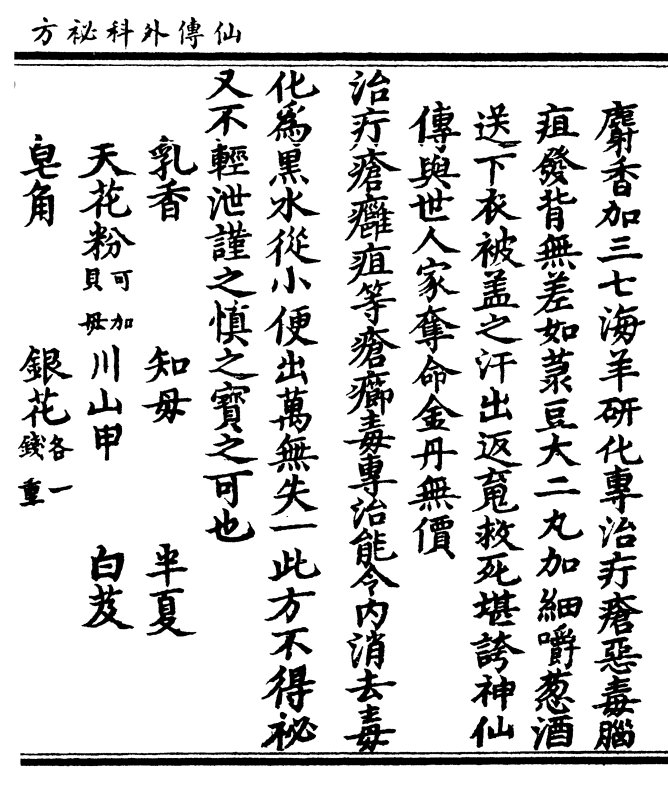 仙傳外科祕方
麝香加三七海羊研化專治疔瘡惡毒腦
疽發背無差如菉豆大二丸加細嚼葱酒
送下衣被盖之汗出返䰟救死堪誇神仙
傳與世人家奪命金丹無價
治疔瘡癰疽等瘡癤毒專治能令內消去毒
化爲黑水從小便出萬無失一此方不得祕
又不輕泄謹之慎之寶之可也
乳香 知毋 半夏
天花粉 可加貝毋 川山甲 白芨
皂角 銀花 各一錢重